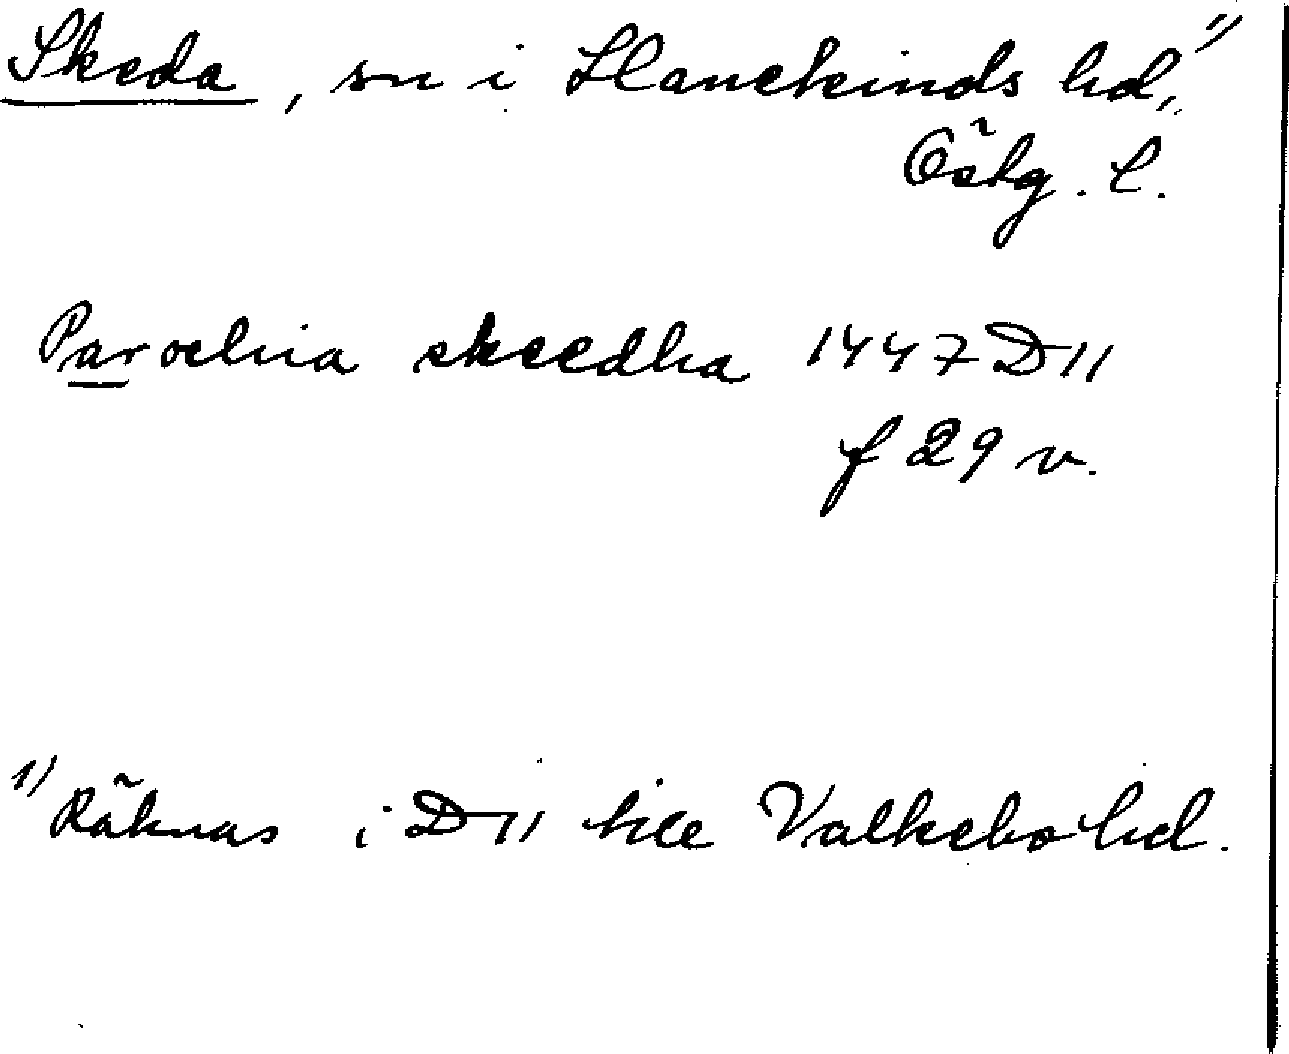 Skeda, sn i Hanekinds hd,¹⁾
Östg. l.
Parochia skeedha 1447 D 11
f 29 v.
¹⁾ Räknas i D 11 till Valkebo hd.